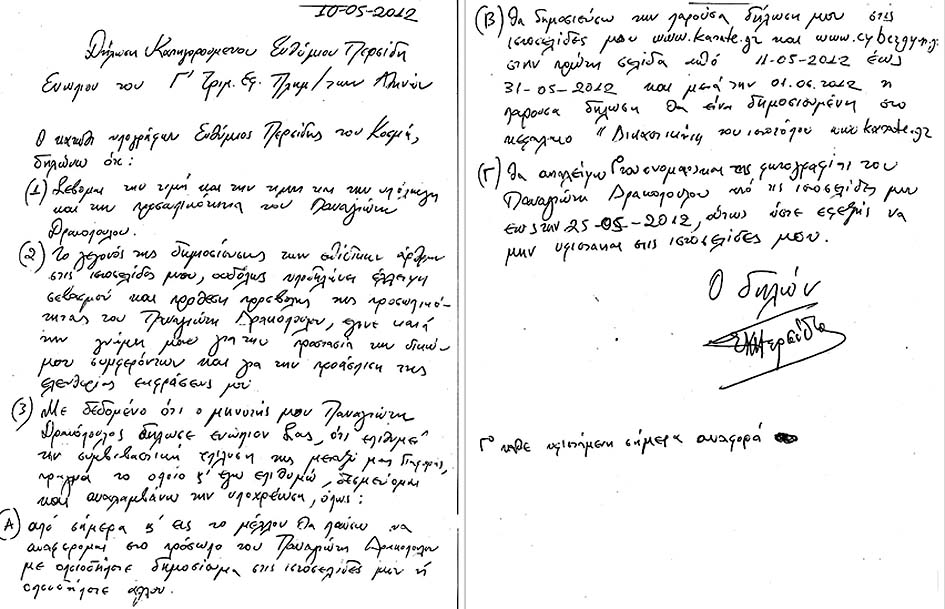 10-05-2012
Δήλωση Κατηγορούμενου Ευθύμιου Περσίδη
Ενώπιον του Γ' Τριμ. Εφ. Πλημ/των Αθηνών
Ο κάτωθι υπογράφων Ευθύμιος Περσίδης του Κοσμά,
δηλώνω ότι:
(1) Σέβομαι την τιμή και την την υπόληψη
και την προσωπικότητα του Παναγιώτη
Δρακόπουλου.
(2) Το γεγονός της δημοσίευσης των επιδίκων άρθρων
στις ιστοσελίδες μου, ουδόλως υποδηλώνει έλλειψη
σεβασμού και πρόθεση προσβολής της προσωπικό-
τητας του Παναγιώτη Δρακόπουλου, έγινε κατά
την γνώμη μου για την προστασία την δικών
μου συμφερόντων και για την προάσπιση της
ελευθερίας εκφράσεως μου
(3) Με δεδομένο ότι ο μηνυτής μου Παναγιώτη
Δρακόπουλος δήλωσε ενώπιον Σας, ότι επιθυμεί
την συμβιβαστική επίλυση της μεταξύ μας διαφοράς,
πράγμα το οποίο κ' εγώ επιθυμώ, δεσμεύομαι
και αναλαμβάνω την υποχρέωση, όπως:
(Α) από σήμερα κ' εις το μέλλον θα παύσω να
αναφέρομαι στο πρόσωπο του Παναγιώτη Δρακόπουλου
με οποιοδήποτε δημοσίευμα στις ιστοσελίδες μου ή
οπουδήποτε αλλού.
(Β) θα δημοσιεύσω την παρούσα δήλωση μου στις
ιστοσελίδες μου www.karate.gr και
στην πρώτη σελίδα από 11-05-2012 έως
31-05-2012 και μετά την 01.06.2012 η
παρούσα δήλωση θα είναι δημοσιευμένη στο
κεφάλαιο "Δικαστικά του ιστοτόπου www.karate.gr
(Γ) θα απαλείψω το όνομα και τις φωτογραφίες του
Παναγιώτη Δρακόπουλου από τις ιστοσελίδες μου
έως την 25-05-2012, ούτως ώστε εφεξής να
μην υφίσταται στις ιστοσελίδες μου.
Ο δηλών
κάθε υφιστάμενη σήμερα αναφορά